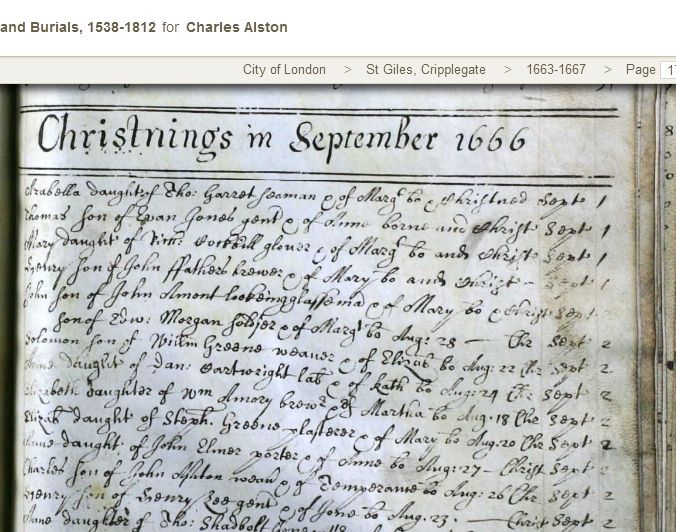 and Burials, 1538-1812 for Charles Alston
City of London > St Giles, Cripplegate > 1663-1667 > Page 17
Christnings in September 1666
Arabella daught of Tho: Garret seaman & of Marg bo & Christned Sept 1
Thomas son of Evan Jones gent & of Anne borne and Christ Sept 1
Mary daught of Rich: glover & of Marg bo and Christ Sept 1
Henry son of John ffathers brewer & of Mary bo and Christ - Sept 1
John son of John Amont & of Mary bo & Christ Sept
son of Edw: Morgan & of Marg bo Aug: 28 — Chr Sept 2
Solomon son of Willm Greene weaver & of Elizab bo Aug: 22 Chr Sept 2
Anne daught of Dan: Cartwright lab & of Kath bo Aug: 24 Chr Sept 2
Elizabeth daughter of Wm Amory brewr & Martha bo Aug. 18 Chr Sept 2
Elizab daught of Steph. Greene plasterer & of Mary bo Aug: 20 Chr Sept 2
Anne daught of John Elmer porter & of Anne bo Aug: 27 - Christ Sept 2
Charles son of John Alston weav & of Temperance bo Aug: 26 Chr Sept 2
Henry son of Henry Lee gent & of Jone bo Aug. 23. — Christ Sept 2
Anne daughter of Tho: Shadbolt